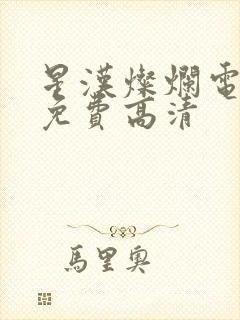 星漢燦爛電
免費高清
馬里奧